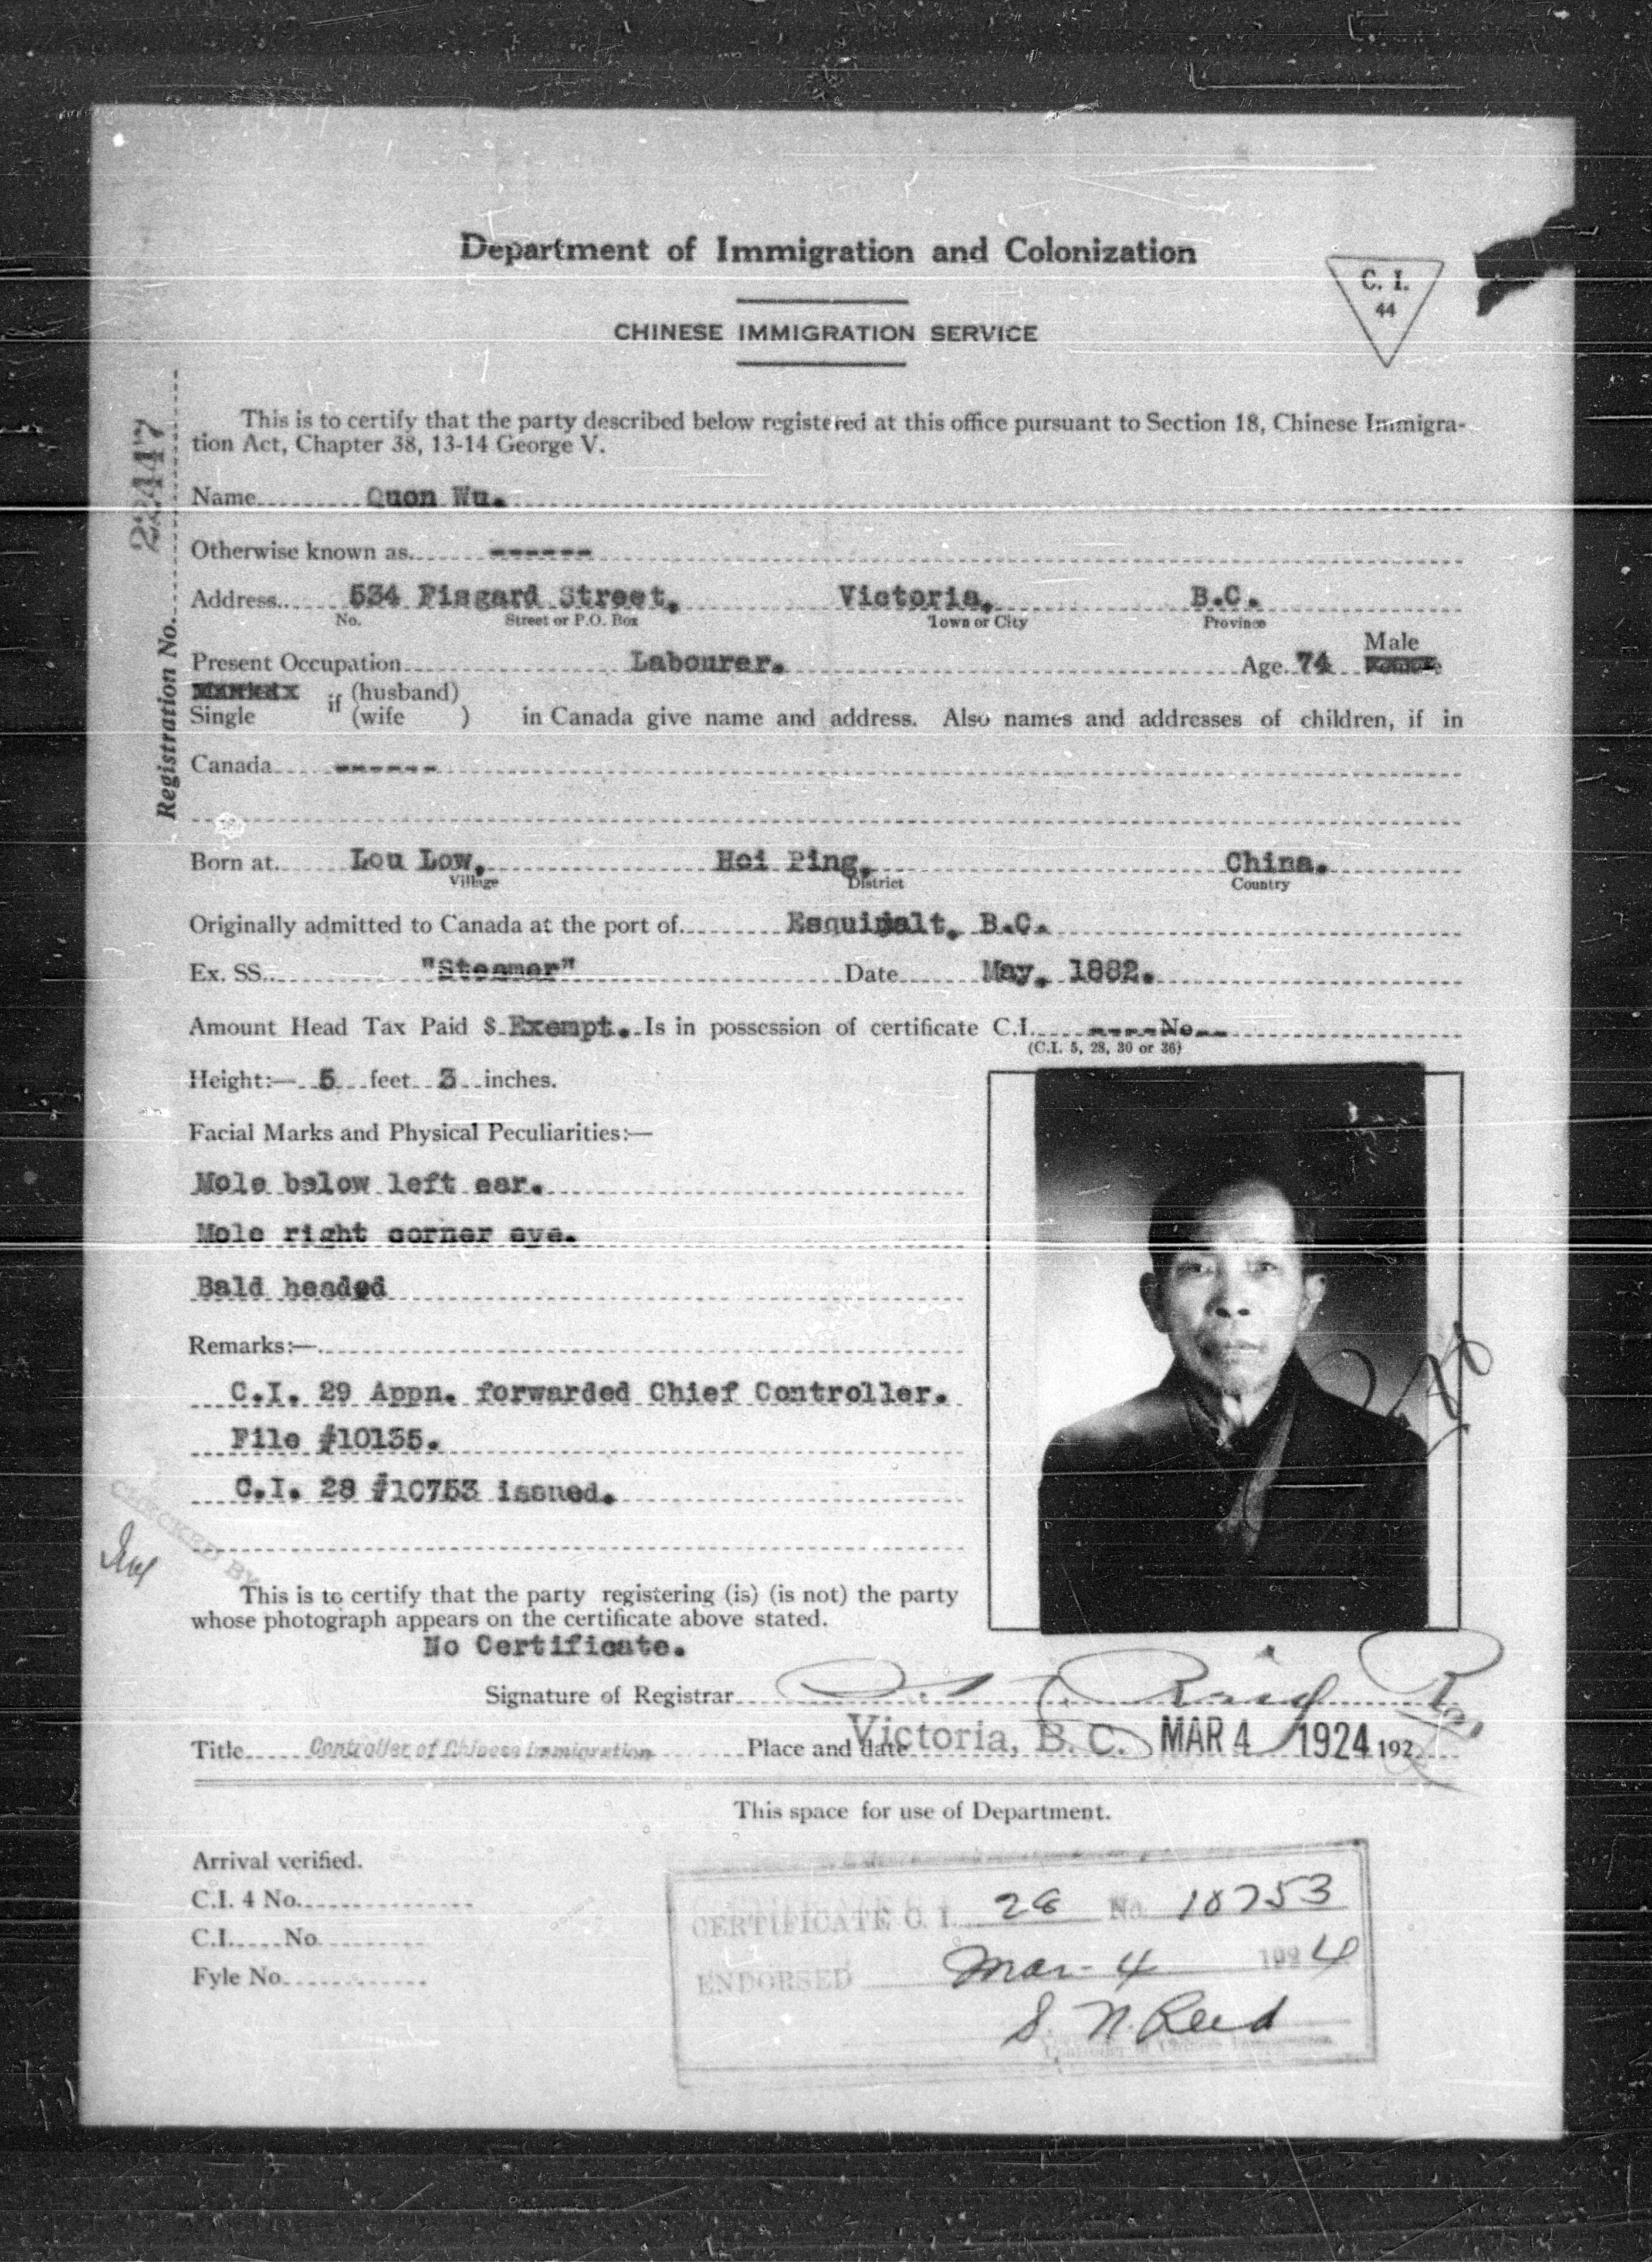 Department of Immigration and Colonization
CHINESE IMMIGRATION SERVICE
C. I.
44
Registration No. 22447
This is to certify that the party described below registered at this office pursuant to Section 18, Chinese Immigra-
tion Act, Chapter 38, 13-14 George V.
Name Quon Wu.
Otherwise known as ------
Address 534 Fisgard Street, Victoria, B.C.
No. Street or P.O. Box Town or City Province
Male
Present Occupation Labourer. Age 74
if (husband)
Single (wife ) in Canada give name and address. Also names and addresses of children, if in
Canada ------
Born at Lou Low, Hoi Ping, China.
Village District Country
Originally admitted to Canada at the port of Esquimalt, B.C.
Ex. SS. "Steamer" Date May, 1882.
Amount Head Tax Paid $ Exempt. Is in possession of certificate C.I. ---- No. --
(C.I. 5, 28, 30 or 36)
Height:— 5 feet 3 inches.
Facial Marks and Physical Peculiarities:—
Mole below left ear.
Mole right corner eye.
Bald headed
Remarks:—
C.I. 29 Appn. forwarded Chief Controller.
File #10135.
C.I. 28 #10753 issued.
CHECKED BY
This is to certify that the party registering (is) (is not) the party
whose photograph appears on the certificate above stated.
No Certificate.
Signature of Registrar
Title Controller of Chinese Immigration Place and date Victoria, B.C. MAR 4 1924 192
This space for use of Department.
Arrival verified.
C.I. 4 No.
C.I. No
Fyle No
CERTIFICATE C. I. 28 No. 10753
ENDORSED Mar. 4 1924
S. N. Reed
Controller of Chinese Immigration